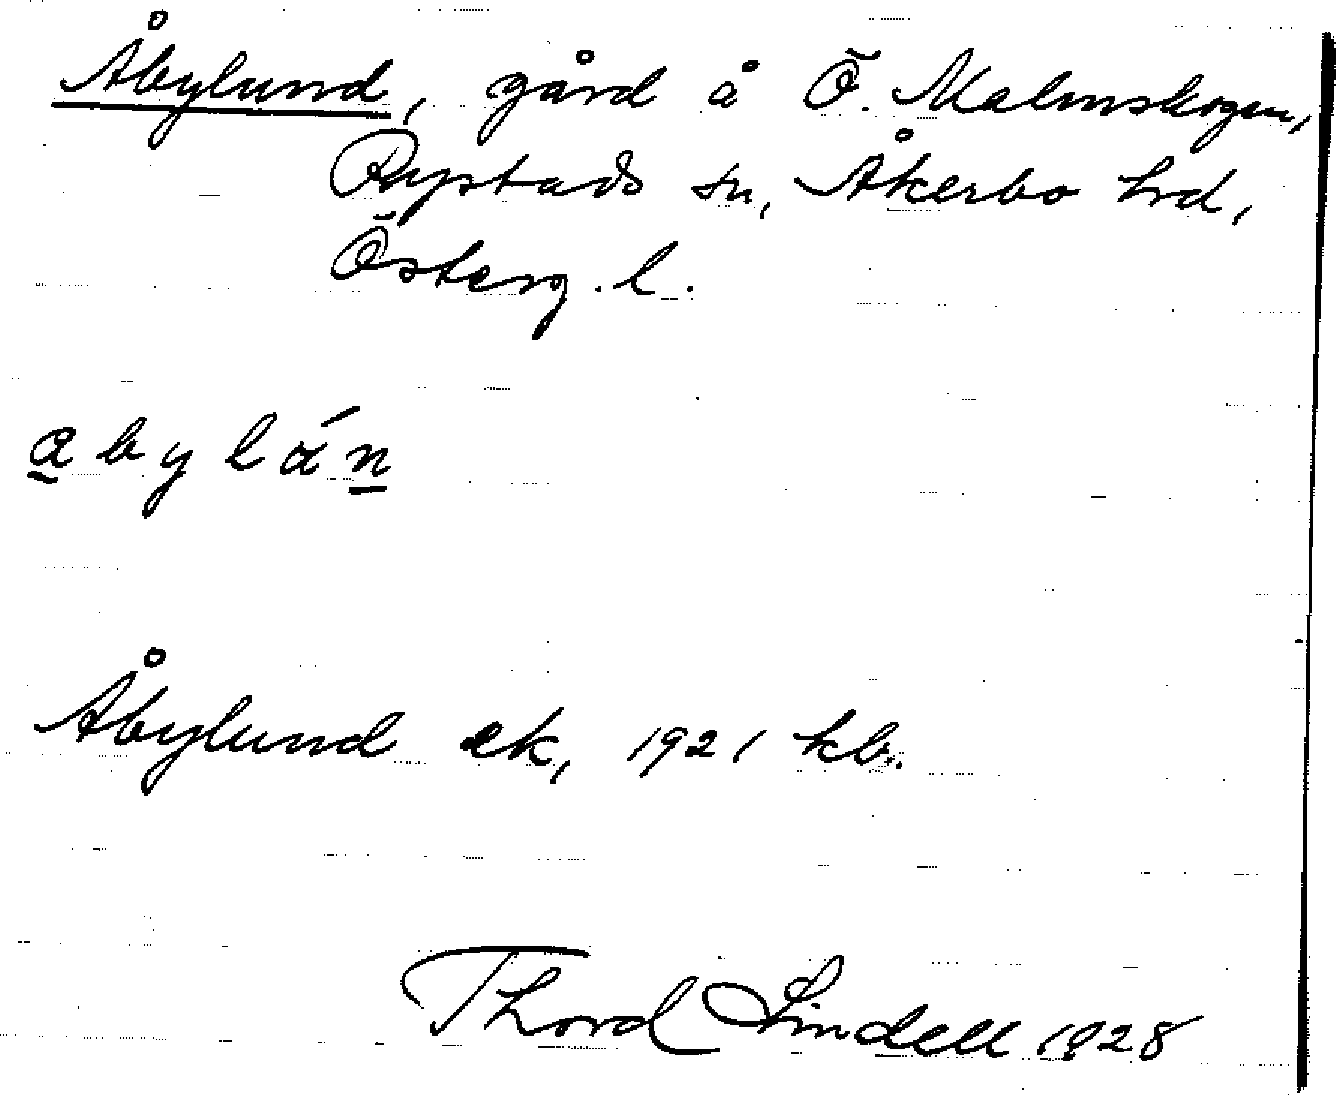 Åbylund, gård å Ö. Malmskogen,
Rystads sn, Åkerbo hrd,
Österg. l.
a b y l á n
Åbylund ek, 1921 kb.
Thord Lindell 1928